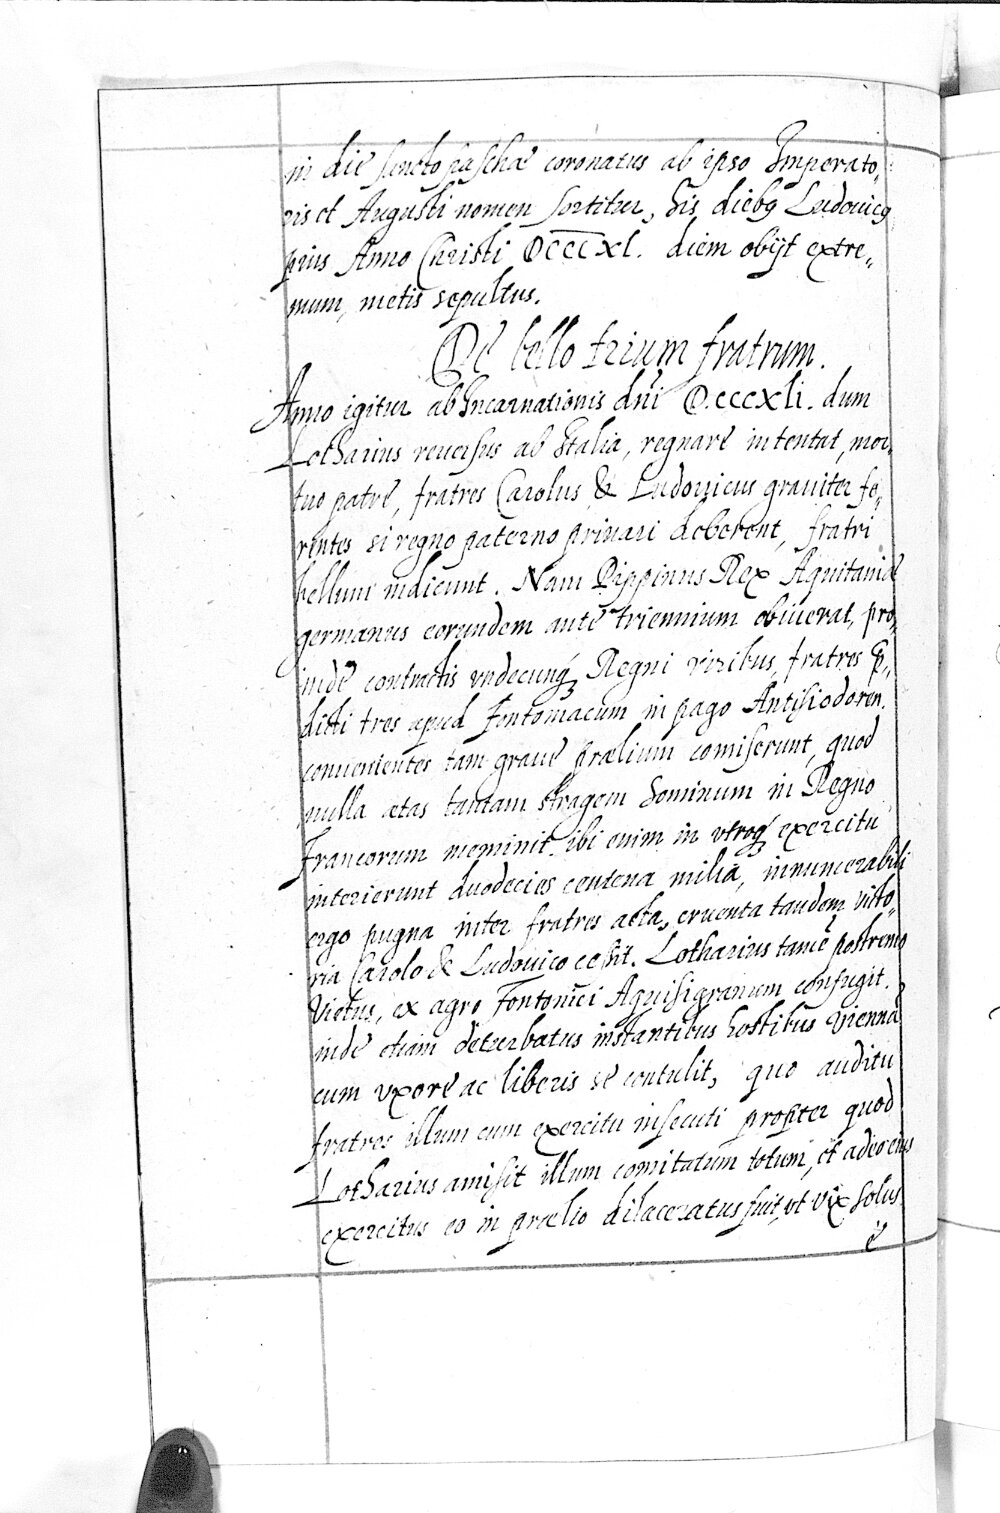 in die sancto paschæ coronatus ab ipso Imperato„
ris et Augusti nomen sortitur, his diebꝫ Ludouicꝫ
pius Anno Christi DCCCXL. diem obijt extre„
mum, metis sepultus.
De bello trium fratrum.
Anno igitur ab Incarnationis dñi D.cccxli. dum
Lotharius reuersus ab Italia, regnare intentat, mor„
tuo patre, fratres Carolus & Ludouicus grauiter fe„
rentes si regno paterno priuari deberent, fratri
bellum indicunt. Nam Pippinus Rex Aquitaniæ
germanus eorundem ante triennium obiuerat, pro„
inde contractis vndecunqꝫ Regni viribus, fratres p̄„
dicti tres apud Fontomacum in pago Antisiodoren.
conuenientes tam graue prælium comiserunt, quod
nulla ætas tantam stragem hominum in Regno
francorum meminit. ibi enim in vtroqꝫ exercitu
interierunt duodecies centena milia, innumerabili
ergo pugna inter fratres acta, cruenta tandem victo„
ria Carolo & Ludouico cessit. Lotharius tamē postremo
Victus, ex agro Fontonici Aquisigranum confugit.
inde etiam deturbatus instantibus hostibus Viennā
cum vxore ac liberis se contulit, quo auditu
fratres illum cum exercitu insecuti propter quod
Lotharius amisit illum comitatum totum, et adeo eius
exercitus eo in prælio dilaceratus fuit, vt vix solus